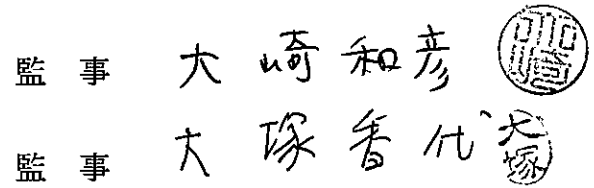 監事 大崎和彦
監事 大塚香代 大塚